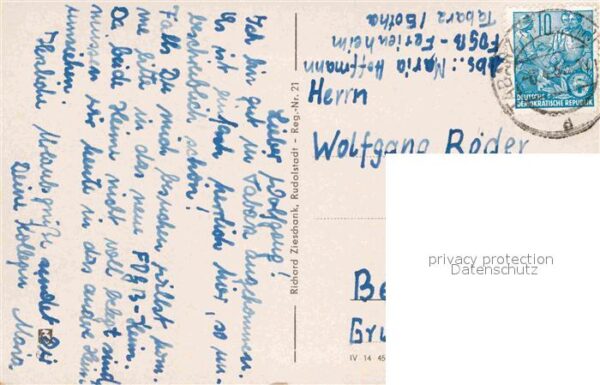 Lieber Wolfgang!
Ich bin gut in Tabarz angekommen.
Es ist einfach herrlich hier, so un-
beschreiblich schön!
Falls Du mich besuchen willst, kom-
me bitte in das neue FDGB-Heim.
Da beide Heime nicht voll belegt sind
mussten wir heute in das andre Heim
umziehen.
Herzliche Urlaubsgrüße sendet Dir
Deine Kollegin Maria.
Richard Zieschank, Rudolstadt - Reg.-Nr. 21
Abs.: Maria Hoffmann
FDGB-Ferienheim
Tabarz/Gotha
10
DEUTSCHE
DEMOKRATISCHE REPUBLIK
Herrn
Wolfgang Röder
privacy protection
Datenschutz
Be
Gru
IV 14 45